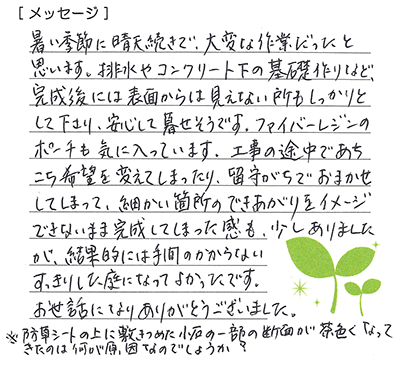 [メッセージ]
暑い季節に晴天続きで、大変な作業だったと
思います。排水やコンクリート下の基礎作りなど、
完成後には表面からは見えない所もしっかりと
して下さり、安心して暮せそうです。ファイバーレジンの
ポーチも気に入っています。工事の途中であち
こち希望を変えてしまったり、留守がちでおまかせ
してしまって、細かい箇所のできあがりをイメージ
できないまま完成してしまった感も、少しありました
が、結果的には手間のかからない
すっきりした庭になってよかったです。
お世話になりありがとうございました。
※防草シートの上に敷きつめた小石の一部の断面が茶色くなって
きたのは何が原因なのでしょうか?